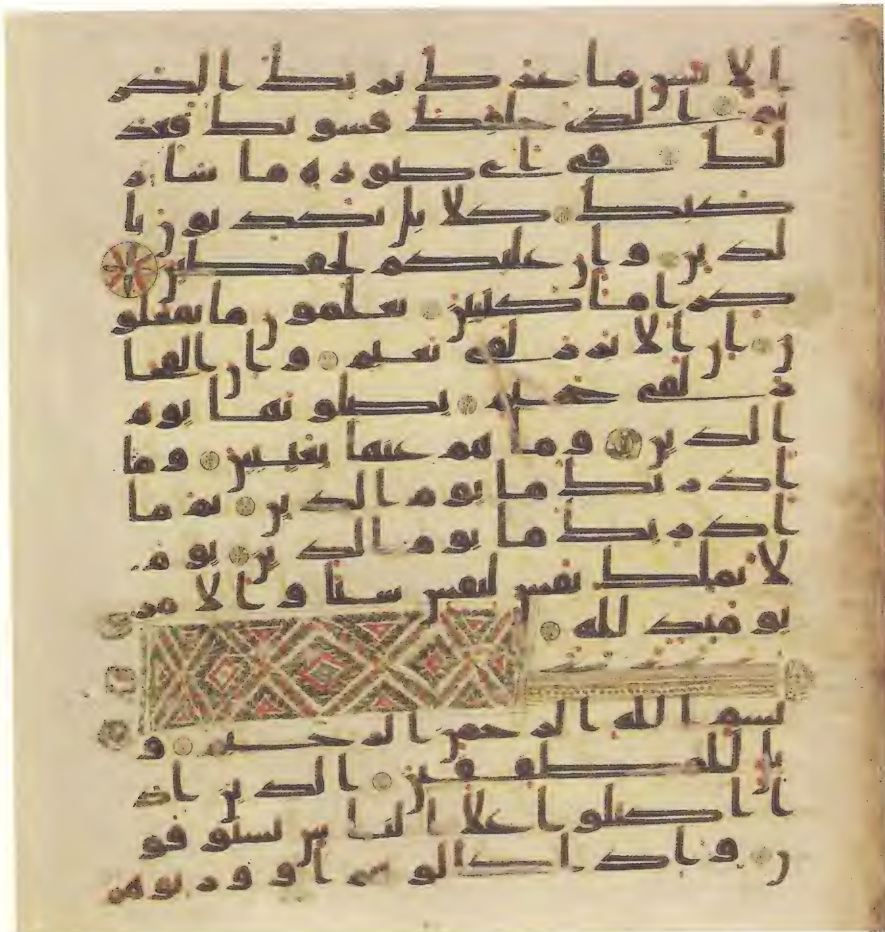 الانسن ما غرك بربك الكر
يم الذي خلقك فسويك فعد
لك في اي صورة ما شا ر
كبك كلا بل تكذبون با
لدين وان عليكم لحفظين
كراما كتبين يعلمون ما تفعلو
ن ان الابرار لفي نعيم وان الفجا
ر لفي جحيم يصلونها يوم
الدين وما هم عنها بغيبين وما
ادريك ما يوم الدين ثم ما
ادريك ما يوم الدين يوم
لا تملك نفس لنفس شيا والامر
يومئذ لله
بسم الله الرحمن الرحيم و
يل للمطففين الذين اذ
ا اكتالوا على الناس يستوفو
ن واذا كالوهم او وزنوهم